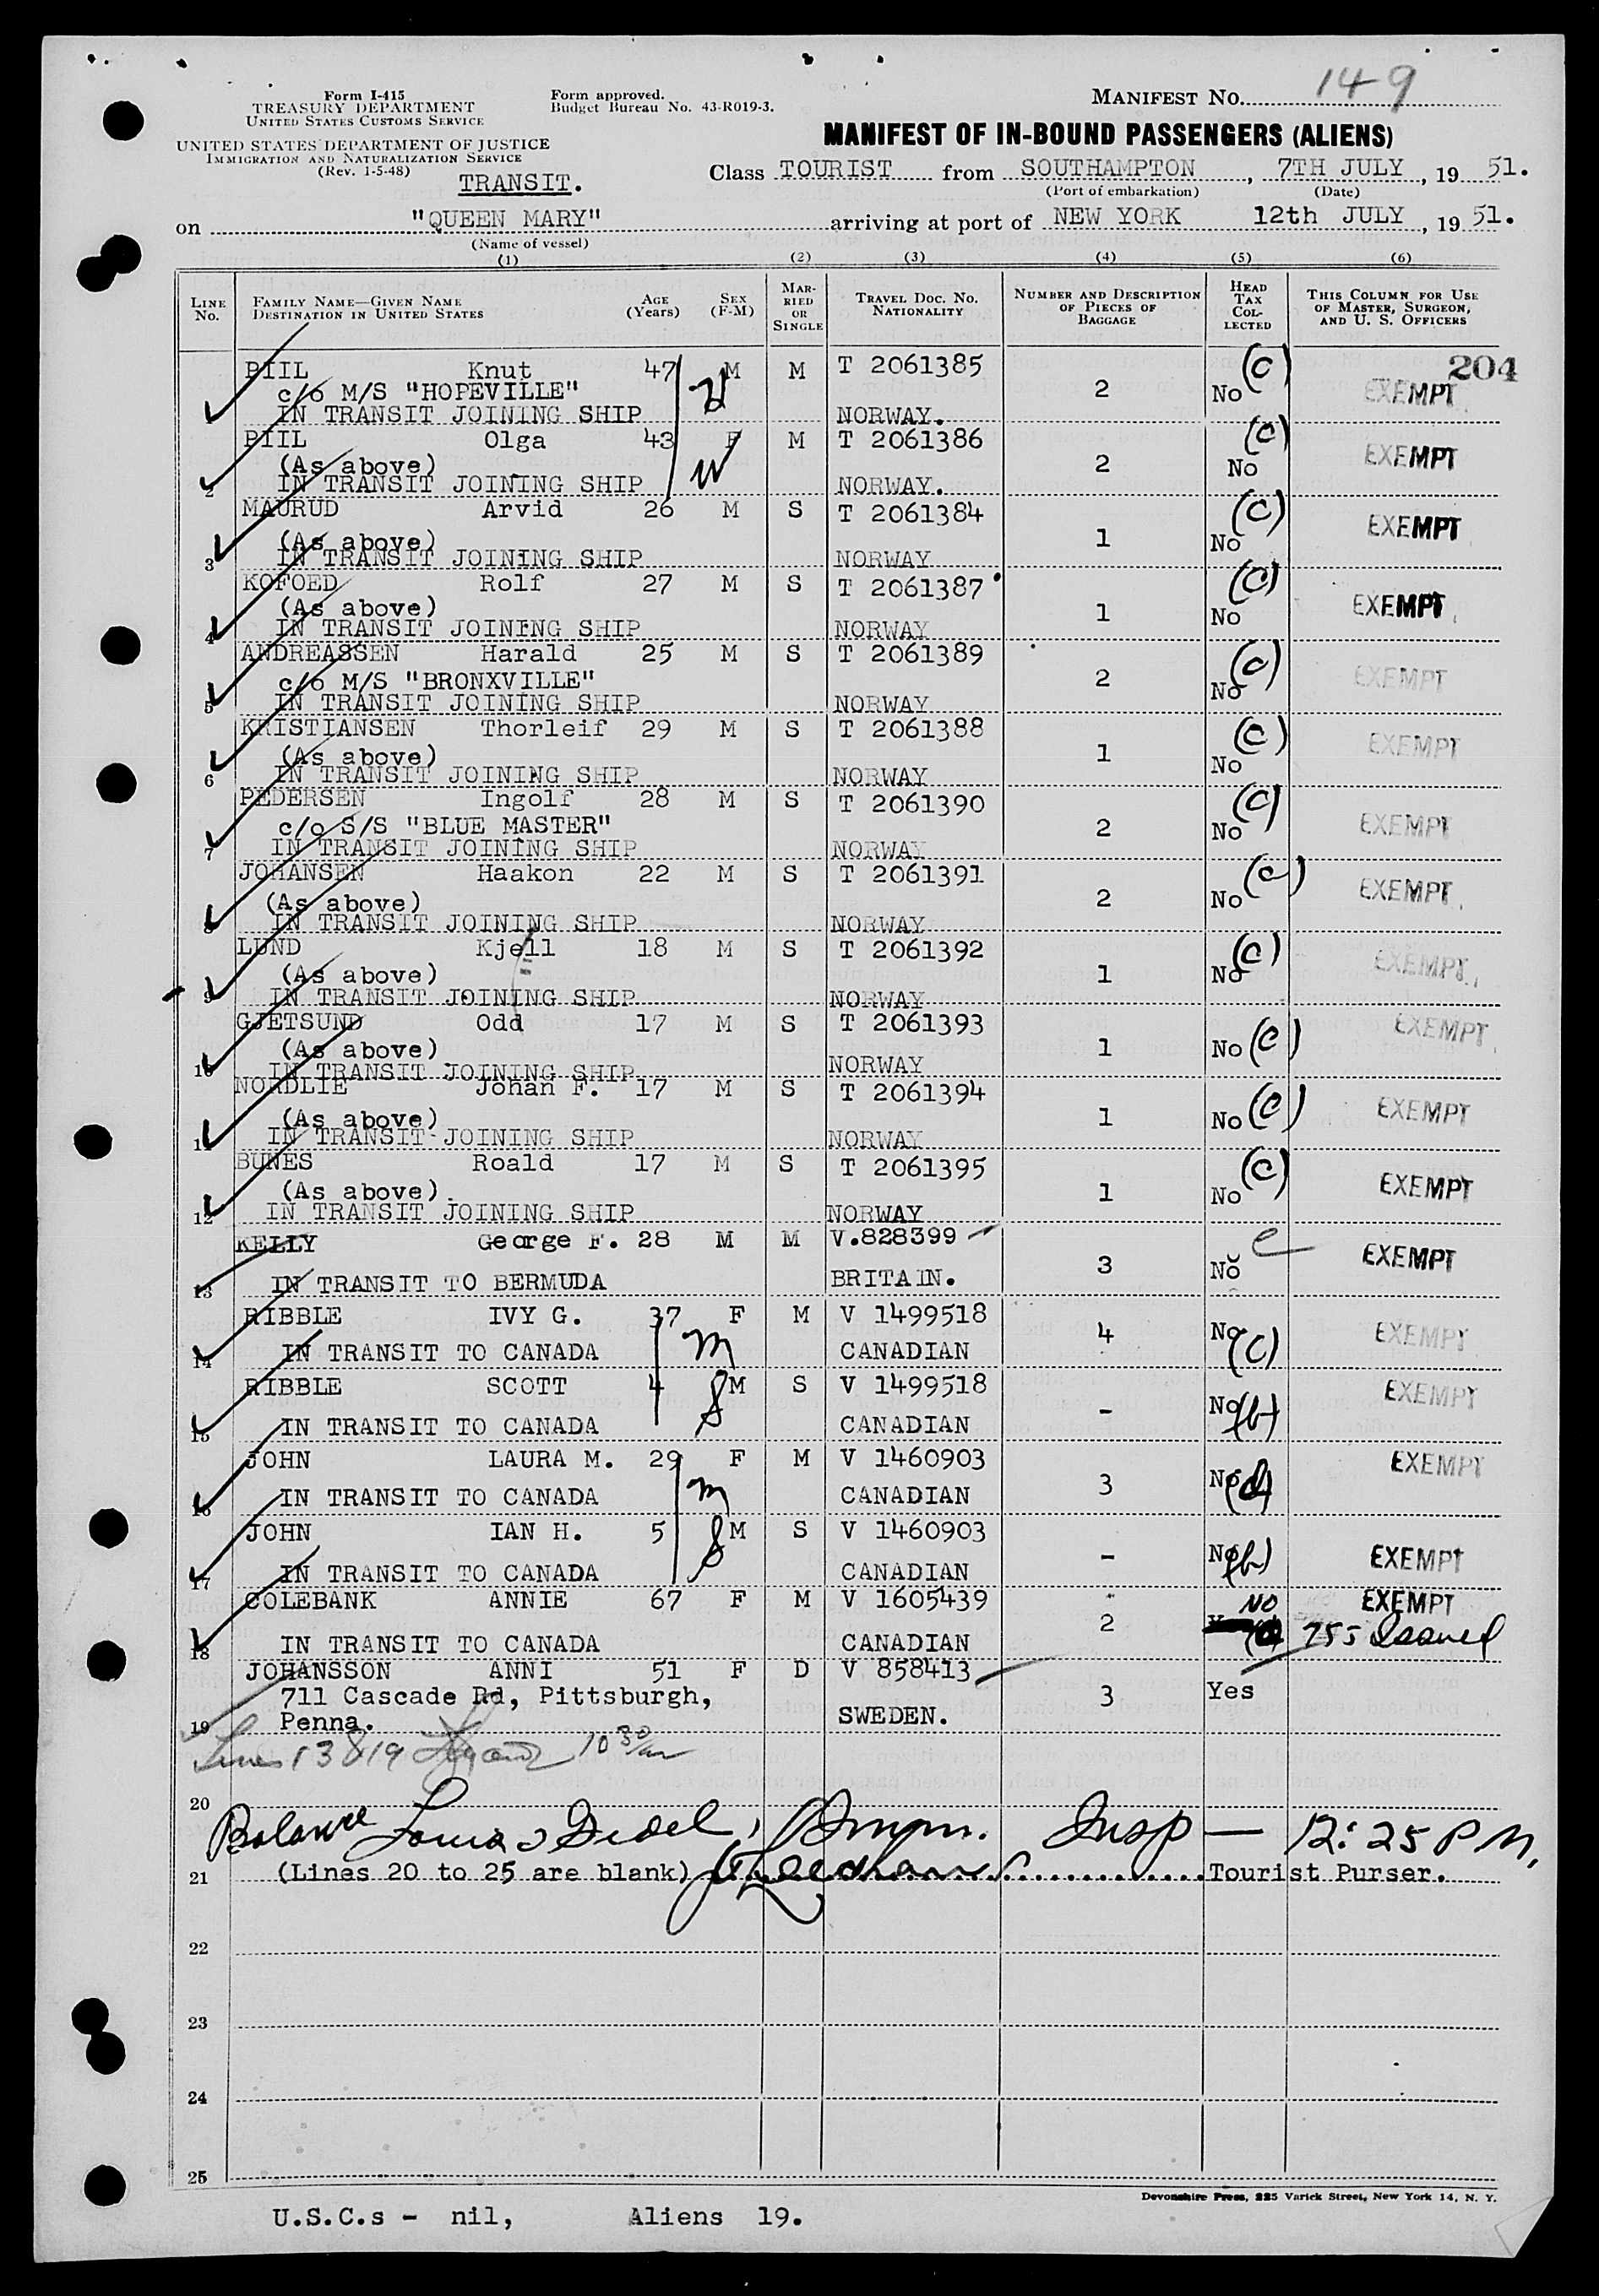 Form I-415
TREASURY DEPARTMENT
UNITED STATES CUSTOMS SERVICE
Form approved.
Budget Bureau No. 43-R019-3.
MANIFEST NO. 149
UNITED STATES DEPARTMENT OF JUSTICE
IMMIGRATION AND NATURALIZATION SERVICE
(Rev. 1-5-48)
MANIFEST OF IN-BOUND PASSENGERS (ALIENS)
TRANSIT.
Class TOURIST from SOUTHAMPTON, 7TH JULY, 19 51.
(Port of embarkation) (Date)
on "QUEEN MARY" arriving at port of NEW YORK 12th JULY, 19 51.
(Name of vessel)
(1) (2) (3) (4) (5) (6)
LINE No. FAMILY NAME—GIVEN NAME DESTINATION IN UNITED STATES AGE (Years) SEX (F-M) MARRIED OR SINGLE TRAVEL DOC. NO. NATIONALITY NUMBER AND DESCRIPTION OF PIECES OF BAGGAGE HEAD TAX COLLECTED THIS COLUMN FOR USE OF MASTER, SURGEON, AND U. S. OFFICERS
204
PIIL Knut 47 M M T 2061385 (c)
c/o M/S "HOPEVILLE" H 2 No EXEMPT
IN TRANSIT JOINING SHIP NORWAY.
PIIL Olga 43 F M T 2061386 (c)
(As above) W 2 No EXEMPT
2 IN TRANSIT JOINING SHIP NORWAY.
MAURUD Arvid 26 M S T 2061384 (c)
(As above) 1 No EXEMPT
3 IN TRANSIT JOINING SHIP NORWAY
KOFOED Rolf 27 M S T 2061387 (c)
(As above) 1 No EXEMPT
4 IN TRANSIT JOINING SHIP NORWAY
ANDREASSEN Harald 25 M S T 2061389 (c)
c/o M/S "BRONXVILLE" 2 No EXEMPT
5 IN TRANSIT JOINING SHIP NORWAY
KRISTIANSEN Thorleif 29 M S T 2061388 (c)
(As above) 1 No EXEMPT
6 IN TRANSIT JOINING SHIP NORWAY
PEDERSEN Ingolf 28 M S T 2061390 (c)
c/o S/S "BLUE MASTER" 2 No EXEMPT
7 IN TRANSIT JOINING SHIP NORWAY
JOHANSEN Haakon 22 M S T 2061391 (c)
(As above) 2 No EXEMPT
8 IN TRANSIT JOINING SHIP NORWAY
LUND Kjell 18 M S T 2061392 (c)
(As above) 1 No EXEMPT
9 IN TRANSIT JOINING SHIP NORWAY
GJETSUND Odd 17 M S T 2061393 EXEMPT
(As above) 1 No (c)
10 IN TRANSIT JOINING SHIP NORWAY
NORDLIE Johan F. 17 M S T 2061394
(As above) 1 No (c) EXEMPT
11 IN TRANSIT JOINING SHIP NORWAY
BUNES Roald 17 M S T 2061395 (c)
(As above). 1 No EXEMPT
12 IN TRANSIT JOINING SHIP NORWAY
KELLY George F. 28 M M V.828399 c
13 IN TRANSIT TO BERMUDA BRITAIN. 3 No EXEMPT
RIBBLE IVY G. 37 F M V 1499518
14 IN TRANSIT TO CANADA m CANADIAN 4 No (c) EXEMPT
RIBBLE SCOTT 4 M S V 1499518
15 IN TRANSIT TO CANADA S CANADIAN - No (b) EXEMPT
JOHN LAURA M. 29 F M V 1460903
16 IN TRANSIT TO CANADA m CANADIAN 3 No EXEMPT
JOHN IAN H. 5 M S V 1460903
17 IN TRANSIT TO CANADA S CANADIAN - No (b) EXEMPT
COLEBANK ANNIE 67 F M V 1605439 NO EXEMPT
18 IN TRANSIT TO CANADA CANADIAN 2 755 Issued
JOHANSSON ANNI 51 F D V 858413
711 Cascade Rd, Pittsburgh, 3 Yes
19 Penna. SWEDEN.
Lines 13 & 19 10 30/am
20
Balance Insp — 12:25 PM.
21 (Lines 20 to 25 are blank) Tourist Purser.
22
23
24
25
Devonshire Press, 225 Varick Street, New York 14, N. Y.
U.S.C.s - nil, Aliens 19.